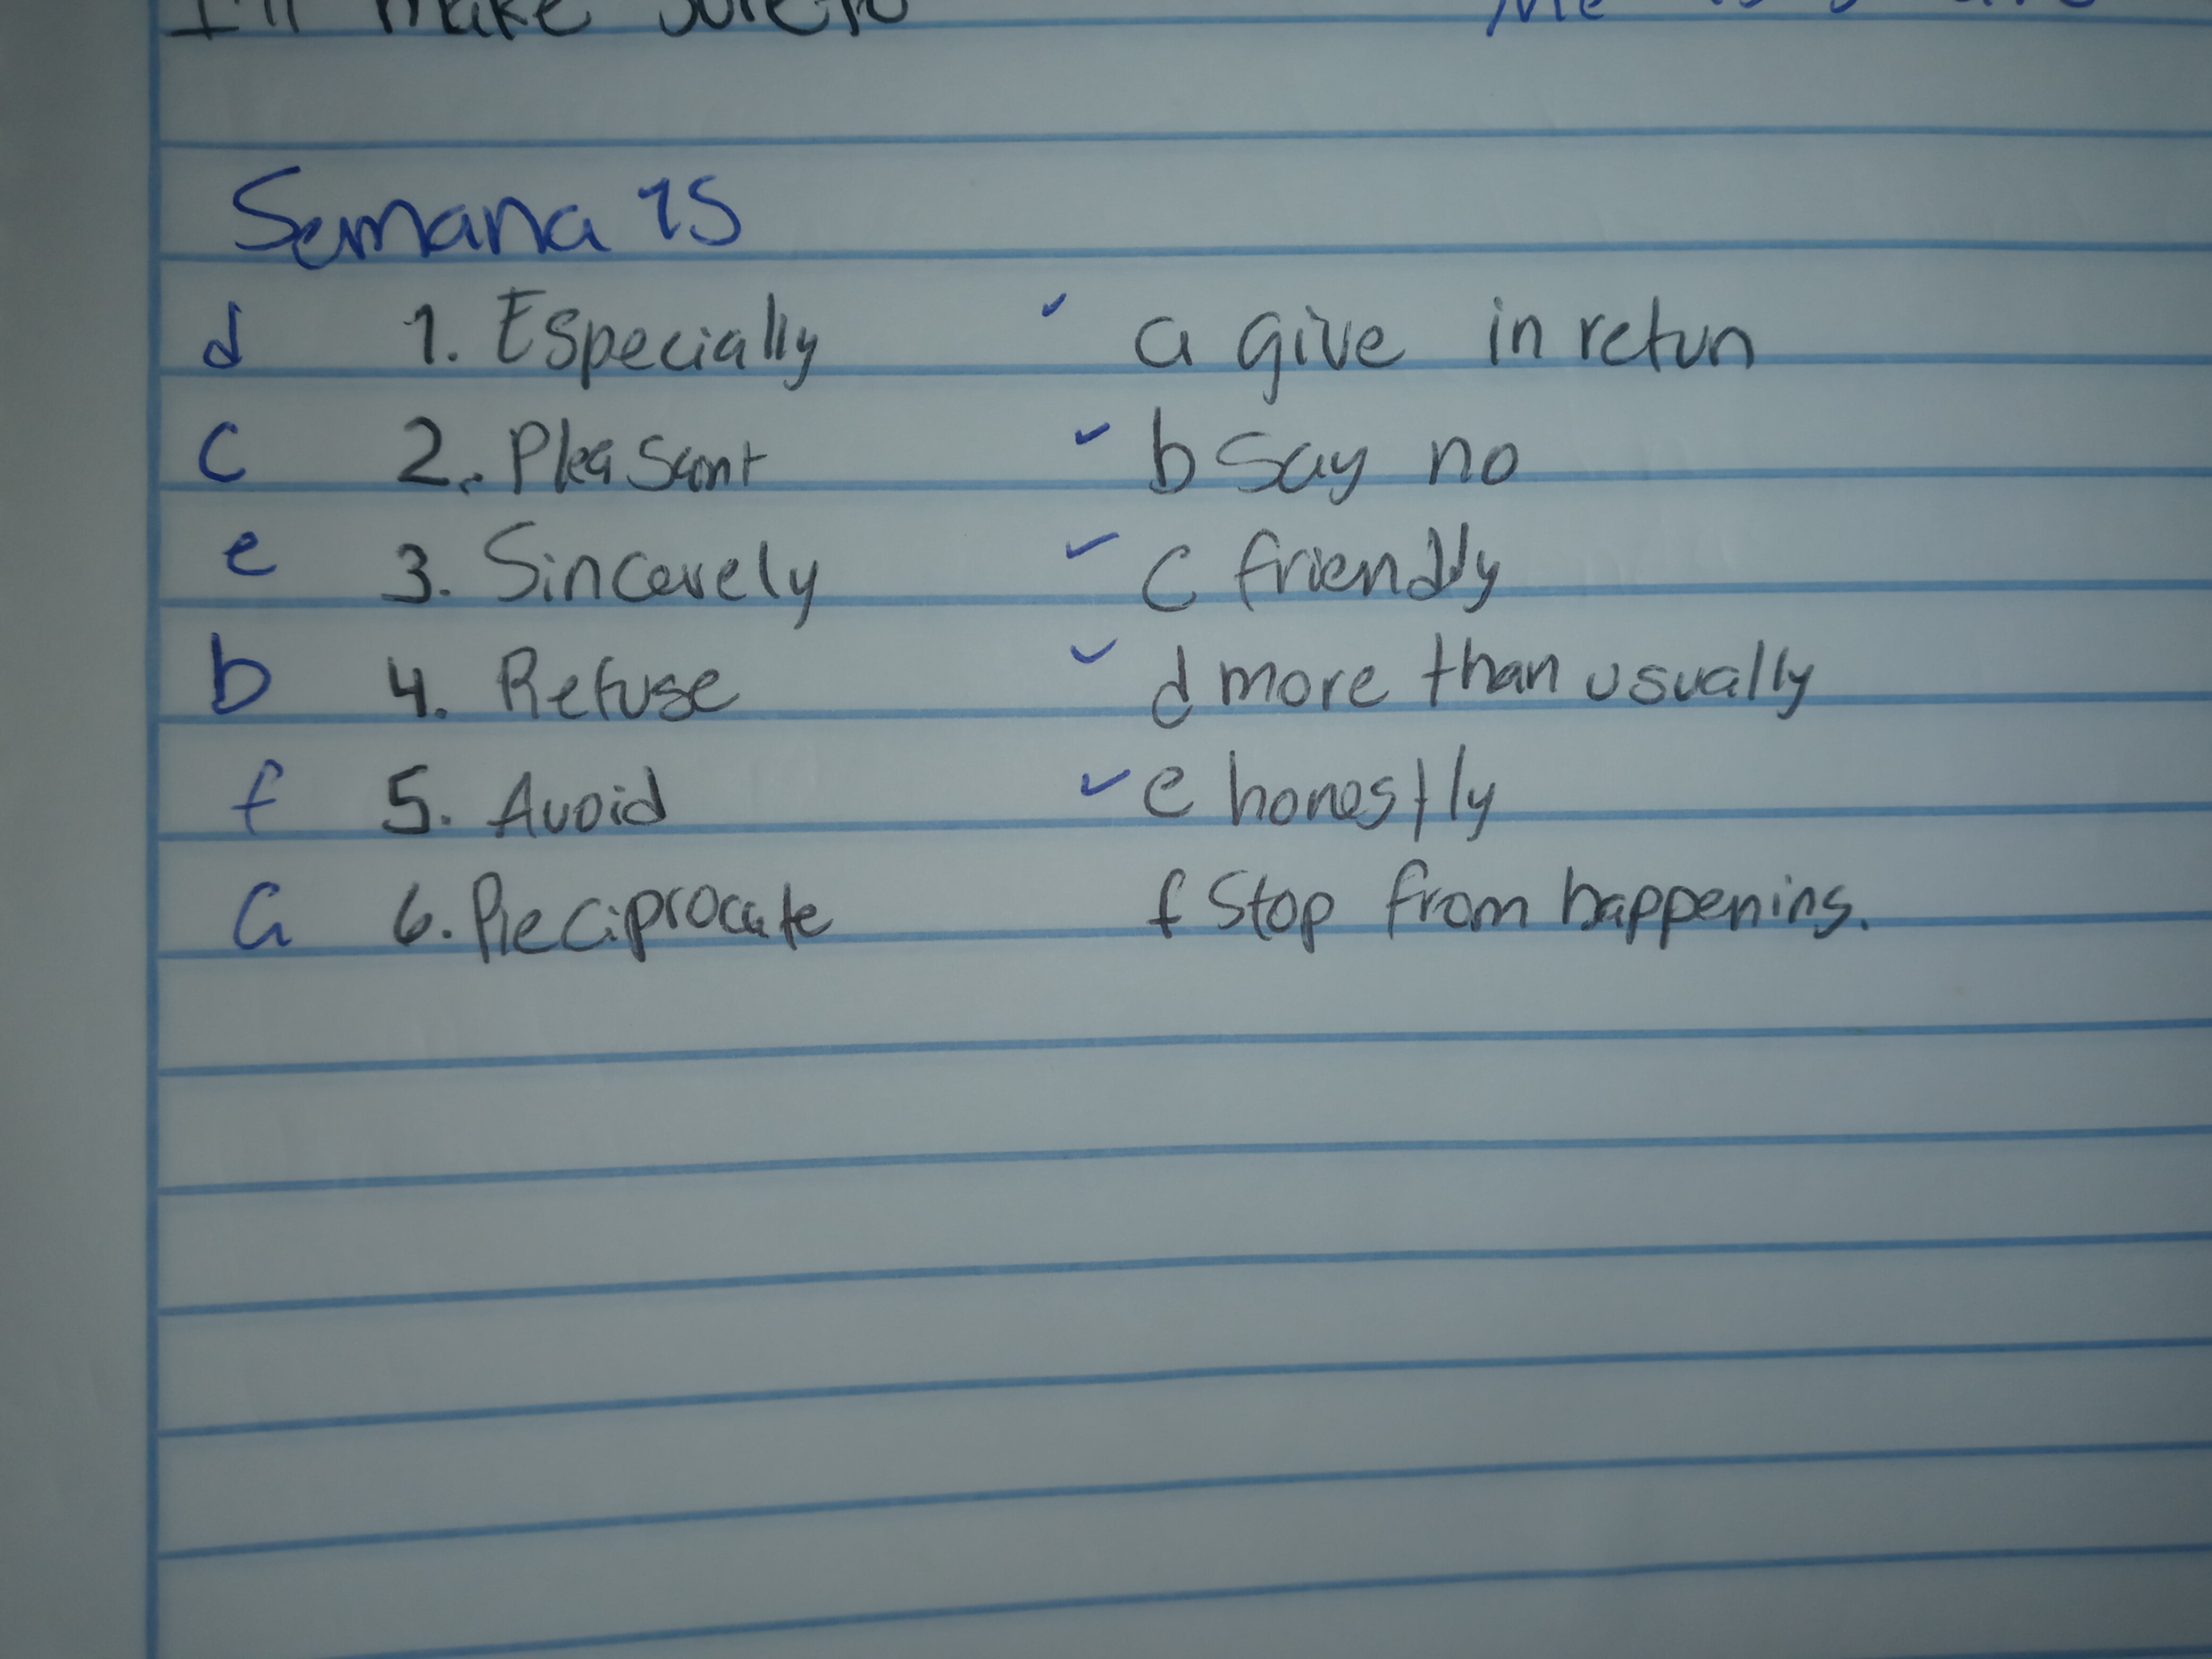 I'll make sure to
Semana 15
d 1. Especially ✓ a give in retun
c 2. Pleasant ✓ b Say no
e 3. Sincerely ✓ c friendly
b 4. Refuse ✓ d more than usually
f 5. Avoid ✓ e honestly
a 6. Reciprocate f Stop from happening.